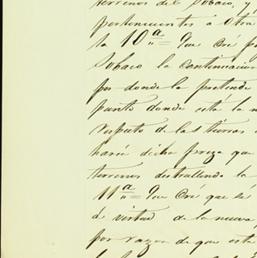 terrenos del Sobaco, y
pertenecientes á otra
la 10ª = Que Cré p
Sobaco la continuacion
por donde la pretende
punto donde está la m
respecto de las tierras
haria dicha pieza que
terrenos destrallando la
11ª = Que Cré que se
de virtud de la nueva
por razon de que esta